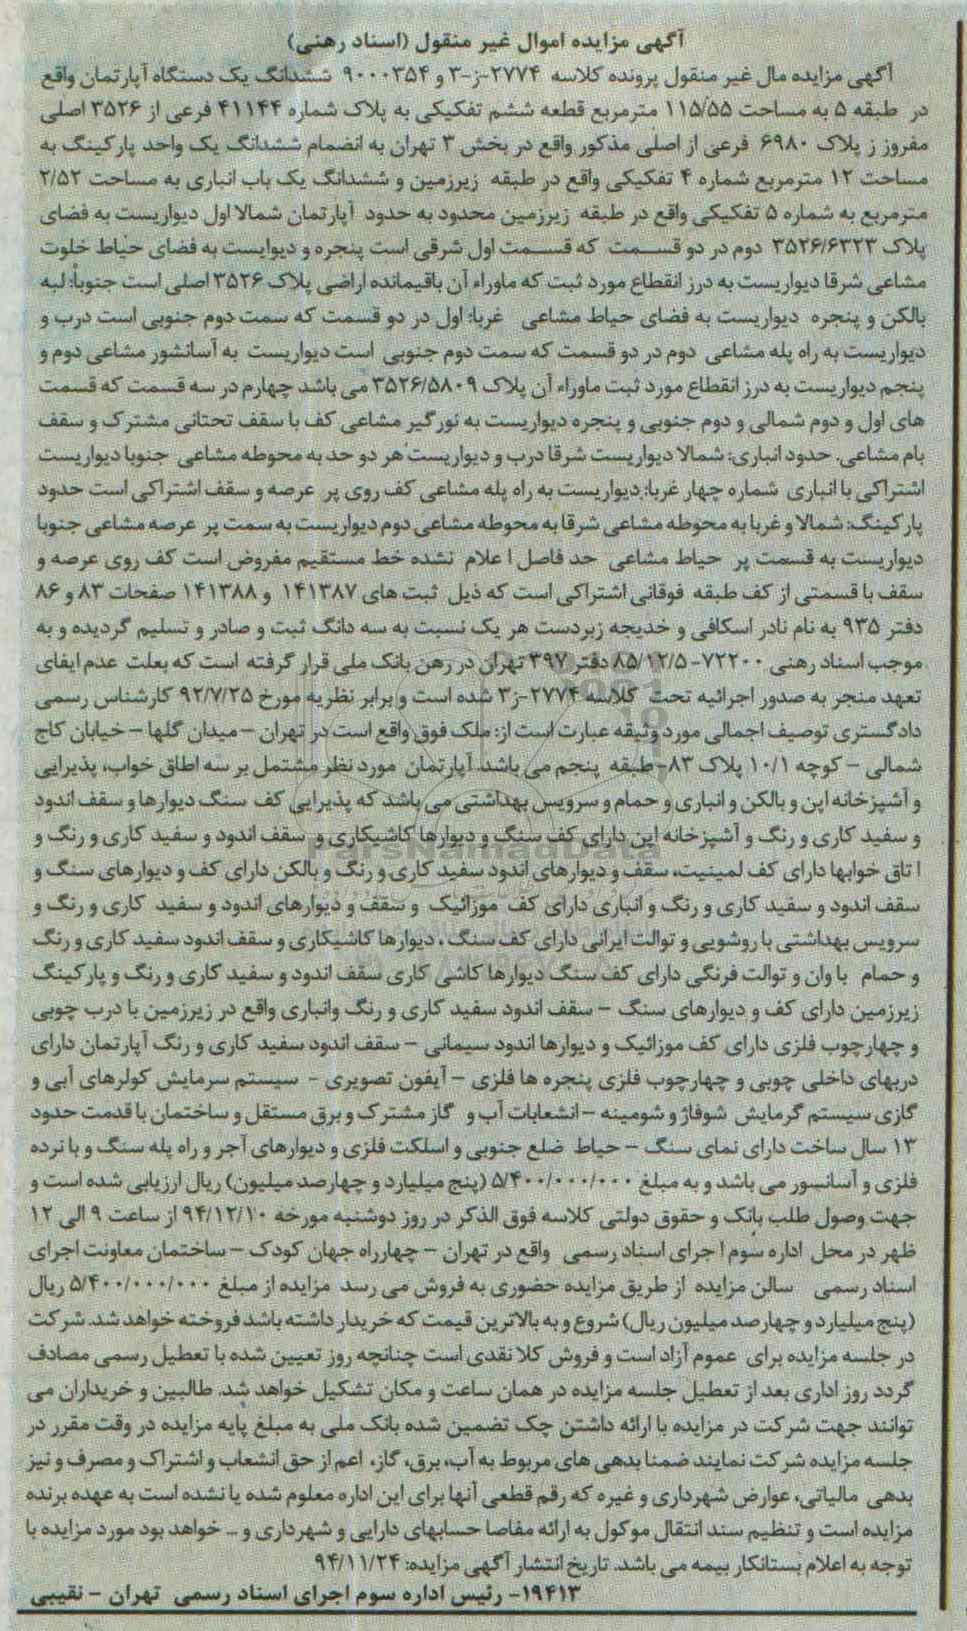 آگهی مزایده اموال غیر منقول (اسناد رهنی)
آگهی مزایده مال غیر منقول پرونده کلاسه ۲۷۷۴-ز-۳ و ۹۰۰۰۳۵۴ ششدانگ یک دستگاه آپارتمان واقع
در طبقه ۵ به مساحت ۱۱۵/۵۵ مترمربع قطعه ششم تفکیکی به پلاک شماره ۴۱۱۴۴ فرعی از ۳۵۲۶ اصلی
مفروز ز پلاک ۶۹۸۰ فرعی از اصلی مذکور واقع در بخش ۳ تهران به انضمام ششدانگ یک واحد پارکینگ به
مساحت ۱۲ مترمربع شماره ۴ تفکیکی واقع در طبقه زیرزمین و ششدانگ یک باب انباری به مساحت ۲/۵۲
مترمربع به شماره ۵ تفکیکی واقع در طبقه زیرزمین محدود به حدود آپارتمان شمالا اول دیواریست به فضای
پلاک ۳۵۲۶/۶۳۲۳ دوم در دو قسمت که قسمت اول شرقی است پنجره و دیوایست به فضای حیاط خلوت
مشاعی شرقا دیواریست به درز انقطاع مورد ثبت که ماوراء آن باقیمانده اراضی پلاک ۳۵۲۶ اصلی است جنوباً: لبه
بالکن و پنجره دیواریست به فضای حیاط مشاعی غربا: اول در دو قسمت که سمت دوم جنوبی است درب و
دیواریست به راه پله مشاعی دوم در دو قسمت که سمت دوم جنوبی است دیواریست به آسانشور مشاعی دوم و
پنجم دیواریست به درز انقطاع مورد ثبت ماوراء آن پلاک ۳۵۲۶/۵۸۰۹ می باشد چهارم در سه قسمت که قسمت
های اول و دوم شمالی و دوم جنوبی و پنجره دیواریست به نورگیر مشاعی کف با سقف تحتانی مشترک و سقف
بام مشاعی. حدود انباری: شمالا دیواریست شرقا درب و دیواریست هر دو حد به محوطه مشاعی جنوبا دیواریست
اشتراکی با انباری شماره چهار غربا: دیواریست به راه پله مشاعی کف روی پر عرصه و سقف اشتراکی است حدود
پارکینگ: شمالا و غربا به محوطه مشاعی شرقا به محوطه مشاعی دوم دیواریست به سمت پر عرصه مشاعی جنوبا
دیواریست به قسمت پر حیاط مشاعی حد فاصل اعلام نشده خط مستقیم مفروض است کف روی عرصه و
سقف با قسمتی از کف طبقه فوقانی اشتراکی است که ذیل ثبت های ۱۴۱۳۸۷ و ۱۴۱۳۸۸ صفحات ۸۳ و ۸۶
دفتر ۹۳۵ به نام نادر اسکافی و خدیجه زبردست هر یک نسبت به سه دانگ ثبت و صادر و تسلیم گردیده و به
موجب اسناد رهنی ۷۲۲۰۰-۸۵/۱۲/۵ دفتر ۳۹۷ تهران در رهن بانک ملی قرار گرفته است که بعلت عدم ایفای
تعهد منجر به صدور اجرائیه تحت کلاسه ۲۷۷۴-ز۳ شده است و برابر نظریه مورخ ۹۲/۷/۲۵ کارشناس رسمی
دادگستری توصیف اجمالی مورد وثیقه عبارت است از: ملک فوق واقع است در تهران - میدان گلها - خیابان کاج
شمالی - کوچه ۱۰/۱ پلاک ۸۳-طبقه پنجم می باشد. آپارتمان مورد نظر مشتمل بر سه اطاق خواب، پذیرایی
و آشپزخانه اپن و بالکن و انباری و حمام و سرویس بهداشتی می باشد که پذیرایی کف سنگ دیوارها و سقف اندود
و سفید کاری و رنگ و آشپزخانه اپن دارای کف سنگ و دیوارها کاشیکاری و سقف اندود و سفید کاری و رنگ و
اتاق خوابها دارای کف لمینیت، سقف و دیوارهای اندود سفید کاری و رنگ و بالکن دارای کف و دیوارهای سنگ و
سقف اندود و سفید کاری و رنگ و انباری دارای کف موزائیک و سقف و دیوارهای اندود و سفید کاری و رنگ و
سرویس بهداشتی با روشویی و توالت ایرانی دارای کف سنگ ، دیوارها کاشیکاری و سقف اندود سفید کاری و رنگ
و حمام با وان و توالت فرنگی دارای کف سنگ دیوارها کاشی کاری سقف اندود و سفید کاری و رنگ و پارکینگ
زیرزمین دارای کف و دیوارهای سنگ - سقف اندود سفید کاری و رنگ وانباری واقع در زیرزمین با درب چوبی
و چهارچوب فلزی دارای کف موزائیک و دیوارها اندود سیمانی - سقف اندود سفید کاری و رنگ آپارتمان دارای
دربهای داخلی چوبی و چهارچوب فلزی پنجره ها فلزی - آیفون تصویری - سیستم سرمایش کولرهای آبی و
گازی سیستم گرمایش شوفاژ و شومینه - انشعابات آب و گاز مشترک و برق مستقل و ساختمان با قدمت حدود
۱۳ سال ساخت دارای نمای سنگ - حیاط ضلع جنوبی و اسلکت فلزی و دیوارهای آجر و راه پله سنگ و با نرده
فلزی و آسانسور می باشد و به مبلغ ۵/۴۰۰/۰۰۰/۰۰۰ (پنج میلیارد و چهارصد میلیون) ریال ارزیابی شده است و
جهت وصول طلب بانک و حقوق دولتی کلاسه فوق الذکر در روز دوشنبه مورخه ۹۴/۱۲/۱۰ از ساعت ۹ الی ۱۲
ظهر در محل اداره سوم اجرای اسناد رسمی واقع در تهران - چهارراه جهان کودک - ساختمان معاونت اجرای
اسناد رسمی سالن مزایده از طریق مزایده حضوری به فروش می رسد مزایده از مبلغ ۵/۴۰۰/۰۰۰/۰۰۰ ریال
(پنج میلیارد و چهارصد میلیون ریال) شروع و به بالاترین قیمت که خریدار داشته باشد فروخته خواهد شد. شرکت
در جلسه مزایده برای عموم آزاد است و فروش کلا نقدی است چنانچه روز تعیین شده با تعطیل رسمی مصادف
گردد روز اداری بعد از تعطیل جلسه مزایده در همان ساعت و مکان تشکیل خواهد شد. طالبین و خریداران می
توانند جهت شرکت در مزایده با ارائه داشتن چک تضمین شده بانک ملی به مبلغ پایه مزایده در وقت مقرر در
جلسه مزایده شرکت نمایند ضمنا بدهی های مربوط به آب، برق، گاز، اعم از حق انشعاب و اشتراک و مصرف و نیز
بدهی مالیاتی، عوارض شهرداری و غیره که رقم قطعی آنها برای این اداره معلوم شده یا نشده است به عهده برنده
مزایده است و تنظیم سند انتقال موکول به ارائه مفاصا حسابهای دارایی و شهرداری و ... خواهد بود مورد مزایده با
توجه به اعلام بستانکار بیمه می باشد. تاریخ انتشار آگهی مزایده: ۹۴/۱۱/۲۴
۱۹۴۱۳- رئیس اداره سوم اجرای اسناد رسمی تهران - نقیبی
ParsNamadData